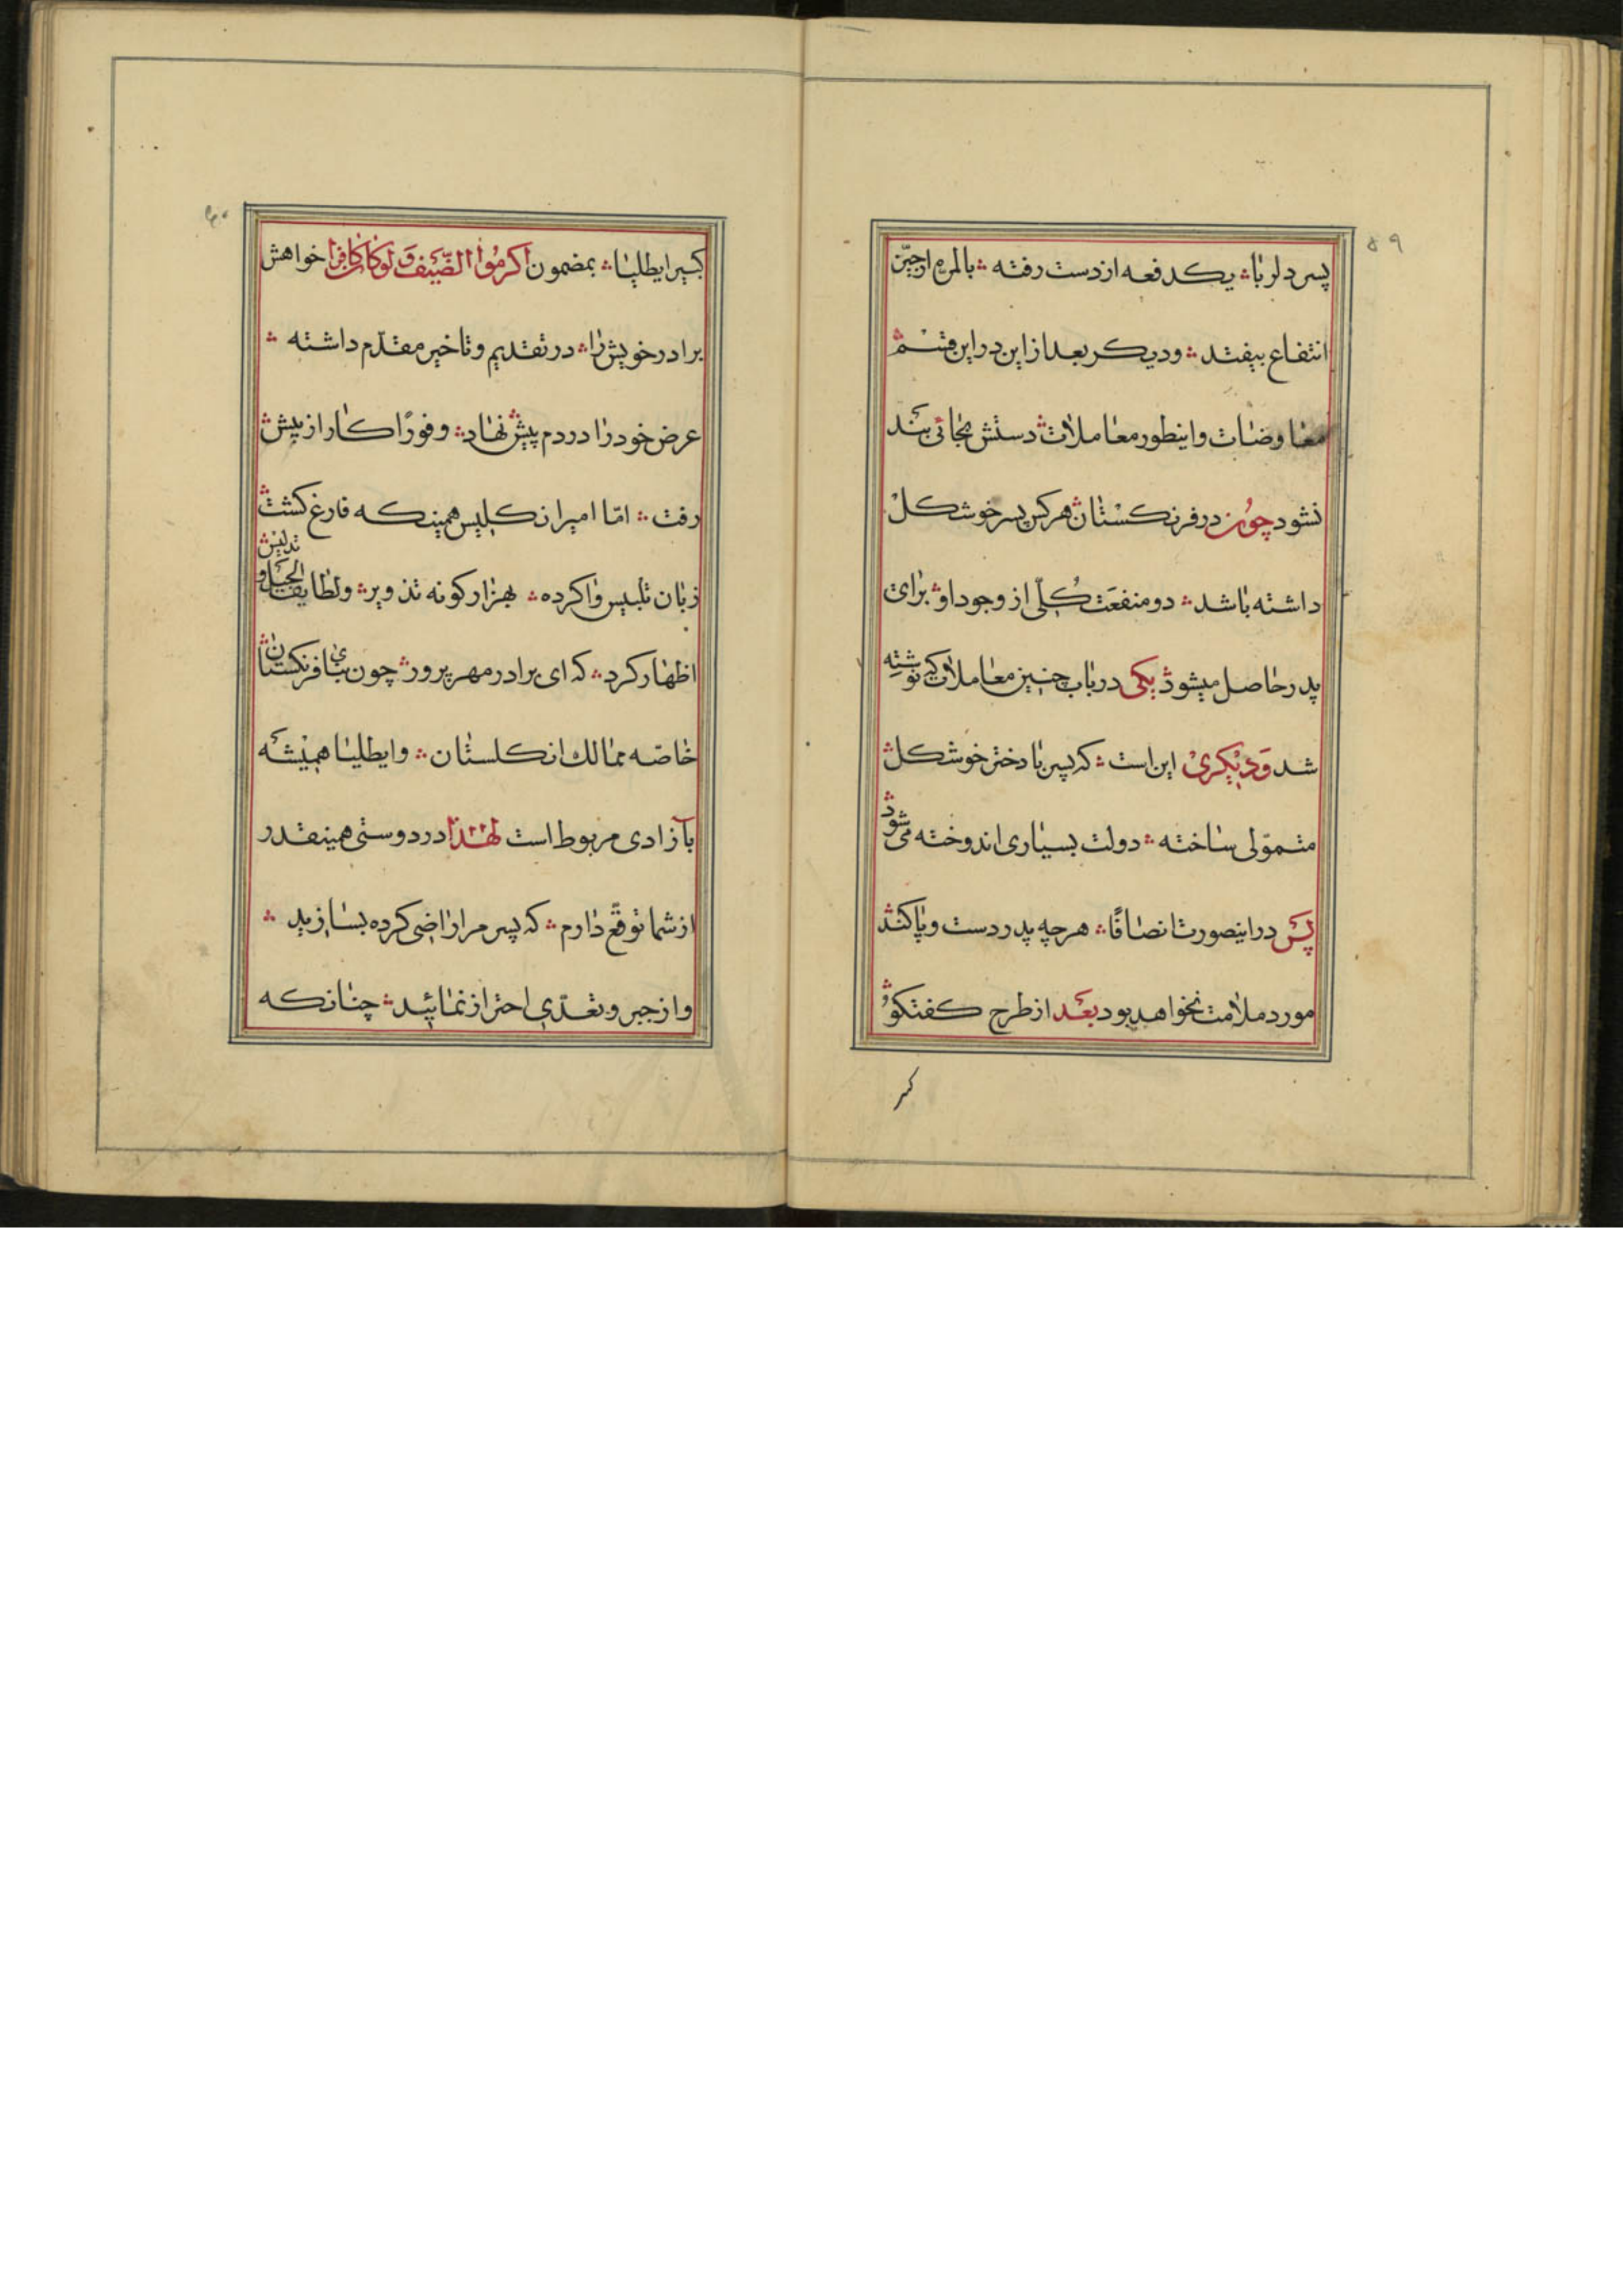 ۵۹
پسر دلربا؞ یکدفعه از دست رفته ؞ بالمره از حیّز
انتفاع بیفتد ؞ و دیگر بعد از این در این قسم
معاوضات و اینطور معاملات؞ دستش بجائی بند
نشود چون در فرنگستان؞ هر کس پسر خوشگل
داشته باشد ؞ دو منفعت کلّی از وجود او؞ برای
پدر حاصل میشود؞ یکی در باب چنین معاملات که نوشته
شد و دیگری این است ؞ که پسر با دختر خوشگل؞
متموّلی ساخته ؞ دولت بسیاری اندوخته می‌شود؞
پس در اینصورت انصافًا؞ هر چه پدر دست و پا کند؞
مورد ملامت نخواهد بود بعد از طرح گفتگو؞
۶۰
کبیر ایطلیا ؞ بمضمون اکرموا الضّیف وَ لو کان کافرا خواهش
برادر خویش را؞ در تقدیم و تاخیر مقدّم داشته ؞
عرض خود را در دم پیش؞ نهاد؞ و فورًا کار از پیش؞
رفت ؞ امّا امیر انکلیس همینکه فارغ کشت؞
زبان تلبیس واکرده ؞ بهزار کونه تذویر؞ و لطایف الحیل و تدلیس؞
اظهار کرد ؞ که ای برادر مهرپرور؞ چون بنای فرنکستان؞
خاصّه ممالک انکلستان ؞ و ایطلیا همیشه
بآزادی مربوط است لهذا در دوستی همینقدر
از شما توقّع دارم ؞ که پسر مرا راضی کرده بسازید ؞
و از جبر و تعدّی احتراز نمائید ؞ چنانکه